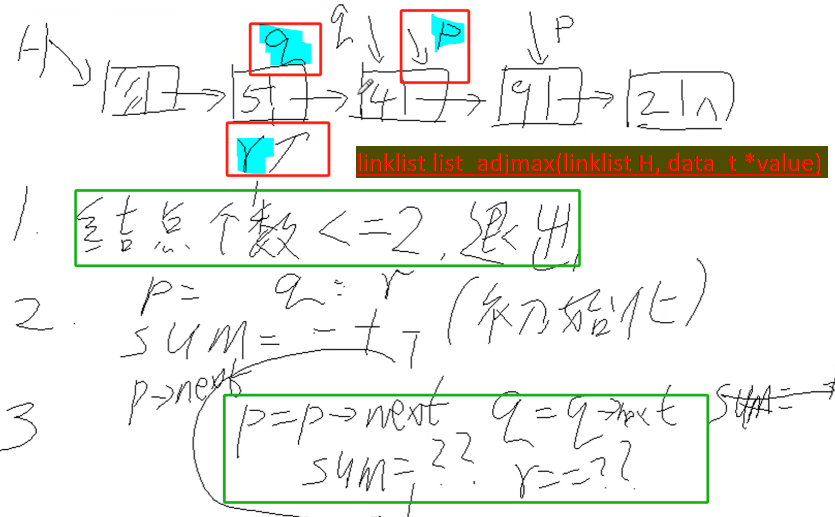 q q p p
H 5 4 9 2 ∧
r
linklist list_adjmax(linklist H, data_t *value)
1. 结点个数<=2,退出
2. p= q= r
sum= (初始化)
p->next
3 p=p->next q=q->next sum=
sum=?? r==??